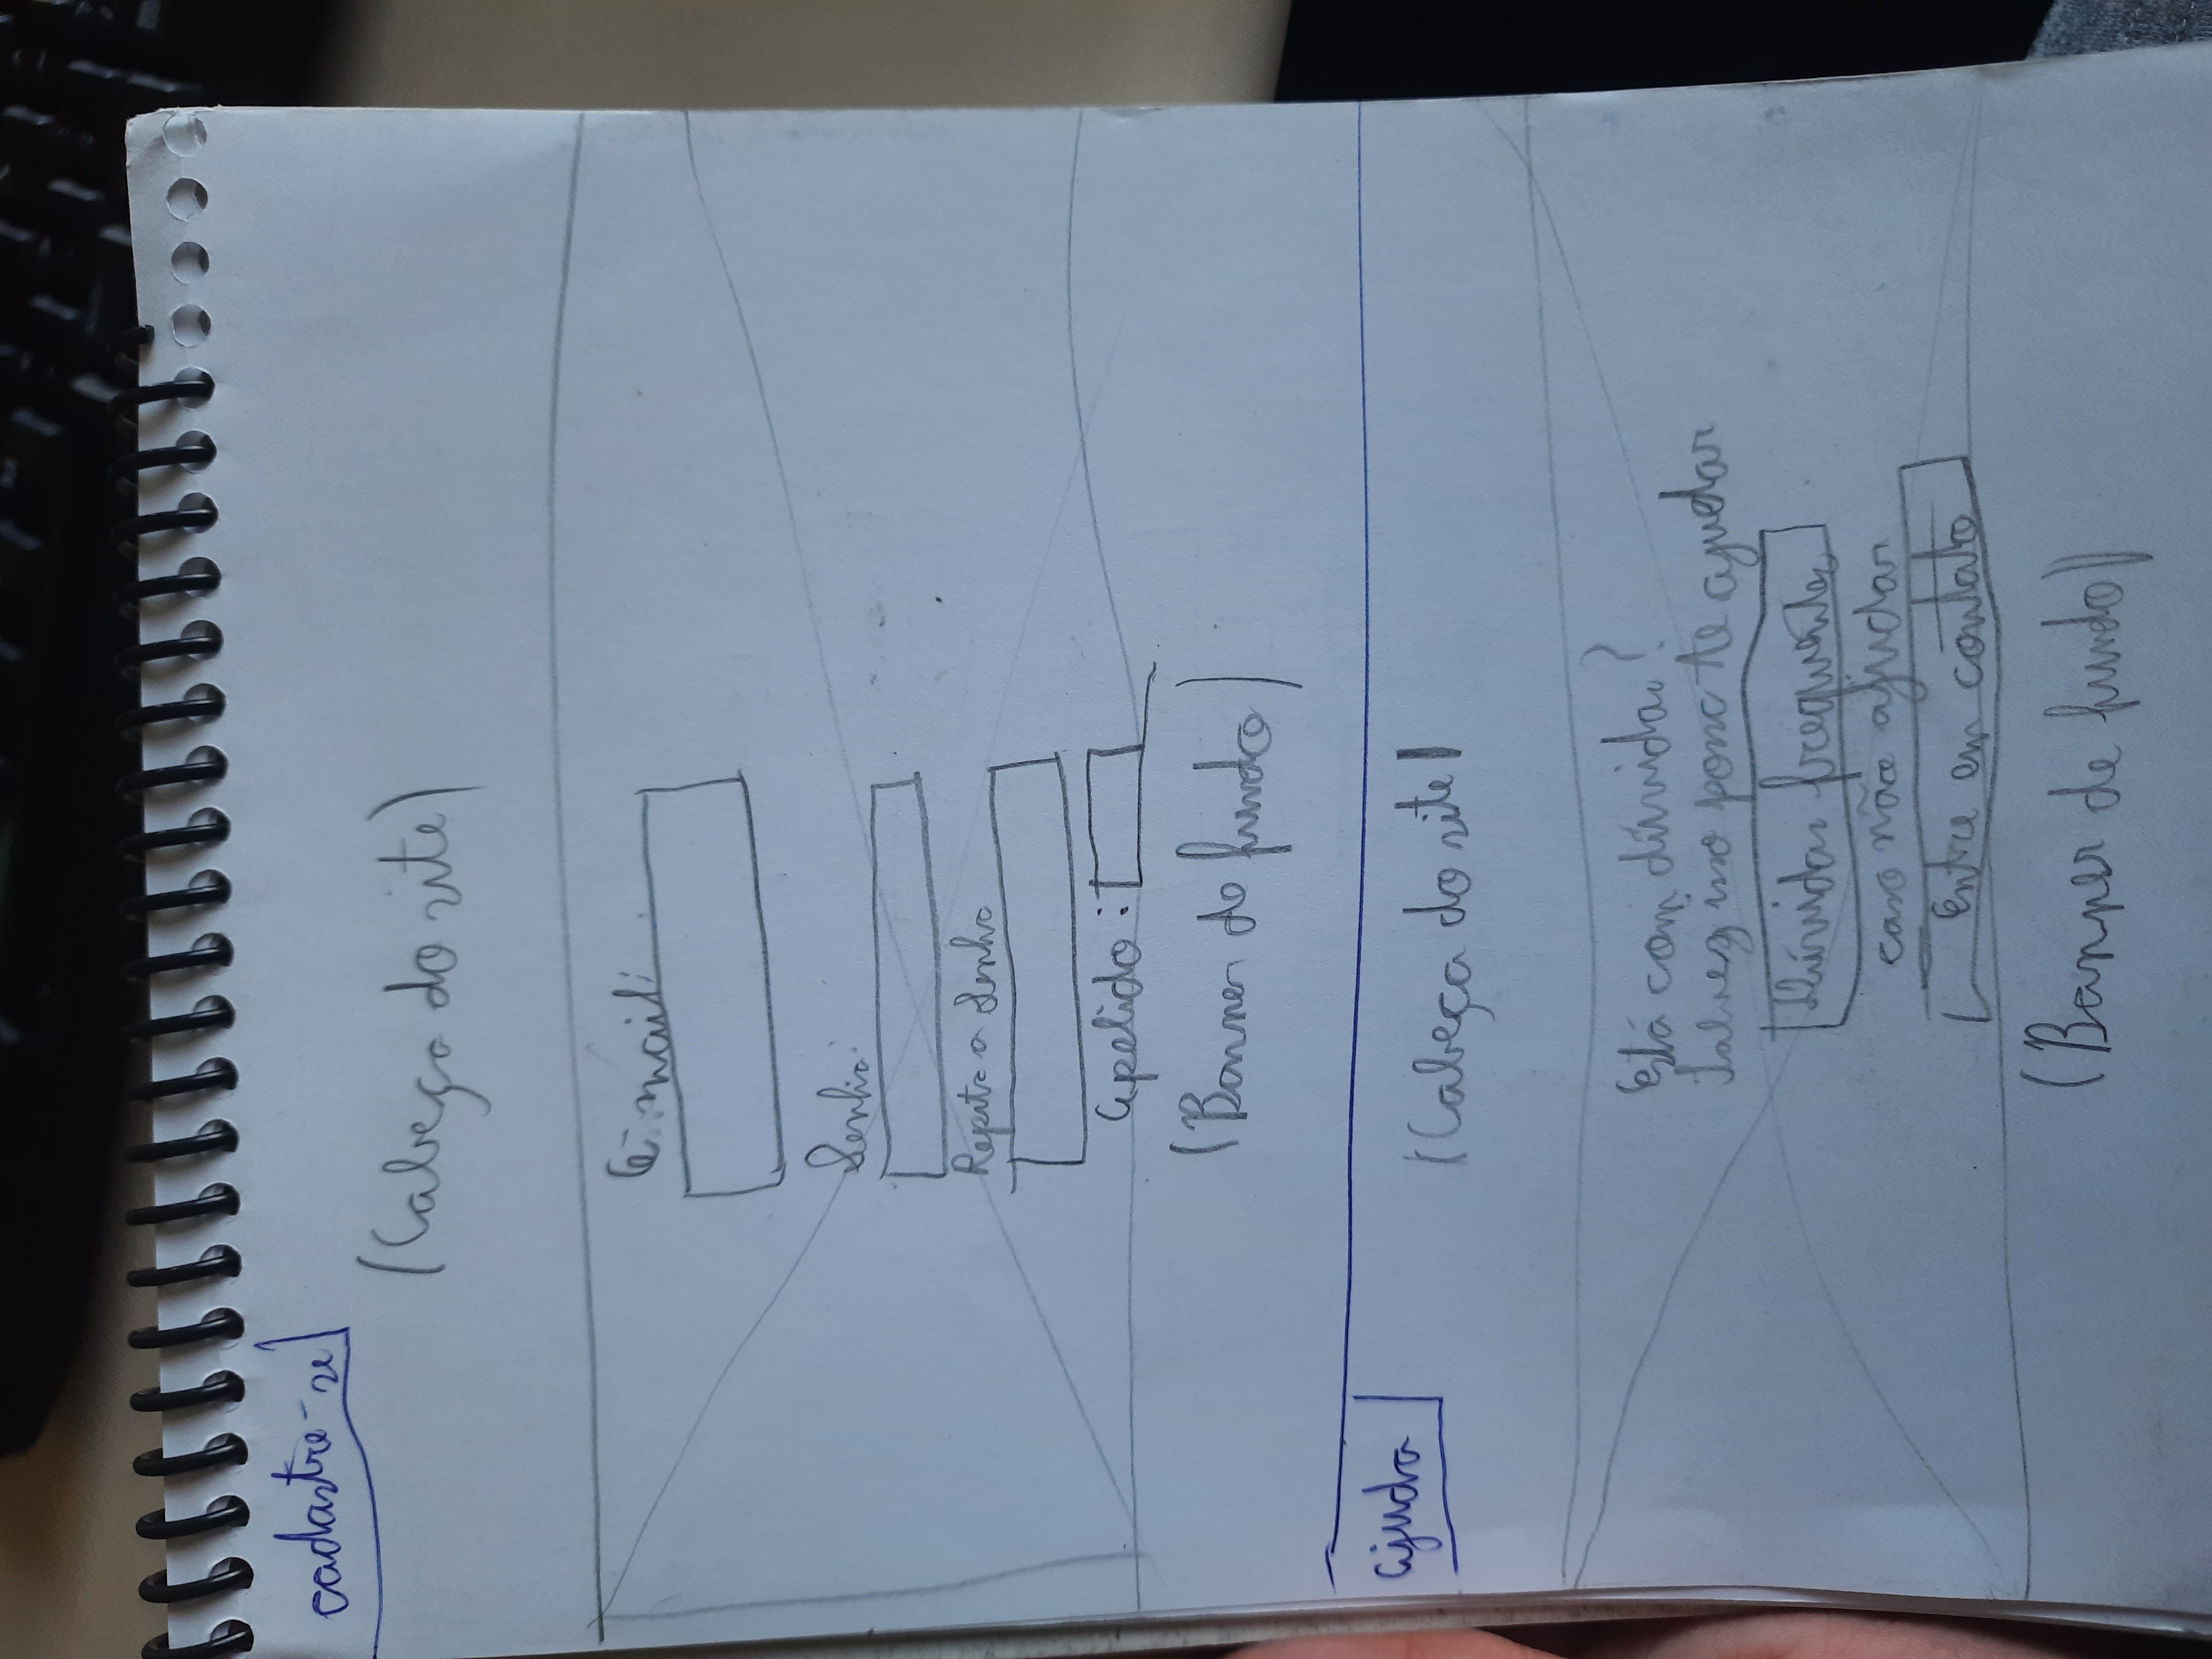 cadastre-se
(Cabeça do site)
E-mail:
Senha:
Repita a Senha
Apelido:
(Banner do fundo)
ajuda
(Cabeça do site)
Está com dúvidas?
Talvez isso possa te ajudar
Dúvidas frequentes
caso não ajudar
Entre em contato
(Banner de fundo)